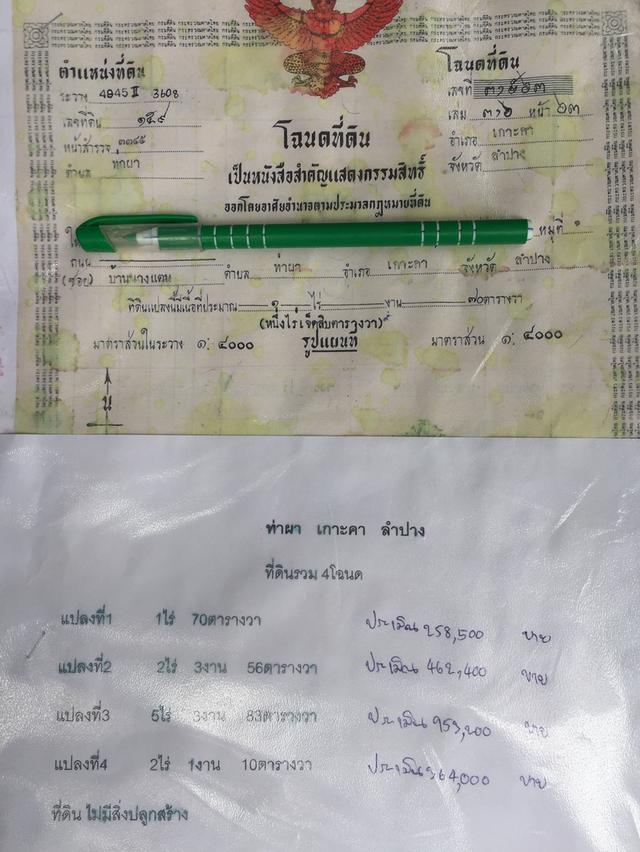 ตำแหน่งที่ดิน
ระวาง 4945 II 3608
เลขที่ดิน ๑๕๙
หน้าสำรวจ ๓๓๔๕
ตำบล ท่าผา
โฉนดที่ดิน
เลขที่
เล่ม ๓๑๖ หน้า ๖๓
อำเภอ เกาะคา
จังหวัด ลำปาง
โฉนดที่ดิน
เป็นหนังสือสำคัญแสดงกรรมสิทธิ์
ออกโดยอาศัยอำนาจตามประมวลกฎหมายที่ดิน
หมู่ที่
ถนน
(ซอย) บ้านนางแตน ตำบล ท่าผา อำเภอ เกาะคา จังหวัด ลำปาง
ที่ดินแปลงนี้มีเนื้อที่ประมาณ ๑ ไร่ งาน ๗๐ ตารางวา
(หนึ่งไร่เจ็ดสิบตารางวา)
รูปแผนที่
มาตราส่วนในระวาง ๑: ๔๐๐๐ มาตราส่วน ๑: ๔๐๐๐
น
ท่าผา เกาะคา ลำปาง
ที่ดินรวม 4โฉนด
แปลงที่1 1ไร่ 70ตารางวา ประเมิน 258,500 บาท
แปลงที่2 2ไร่ 3งาน 56ตารางวา ประเมิน 462,400 บาท
แปลงที่3 5ไร่ 3งาน 83ตารางวา ประเมิน 953,200 บาท
แปลงที่4 2ไร่ 1งาน 10ตารางวา ประเมิน 364,000 บาท
ที่ดิน ไม่มีสิ่งปลูกสร้าง